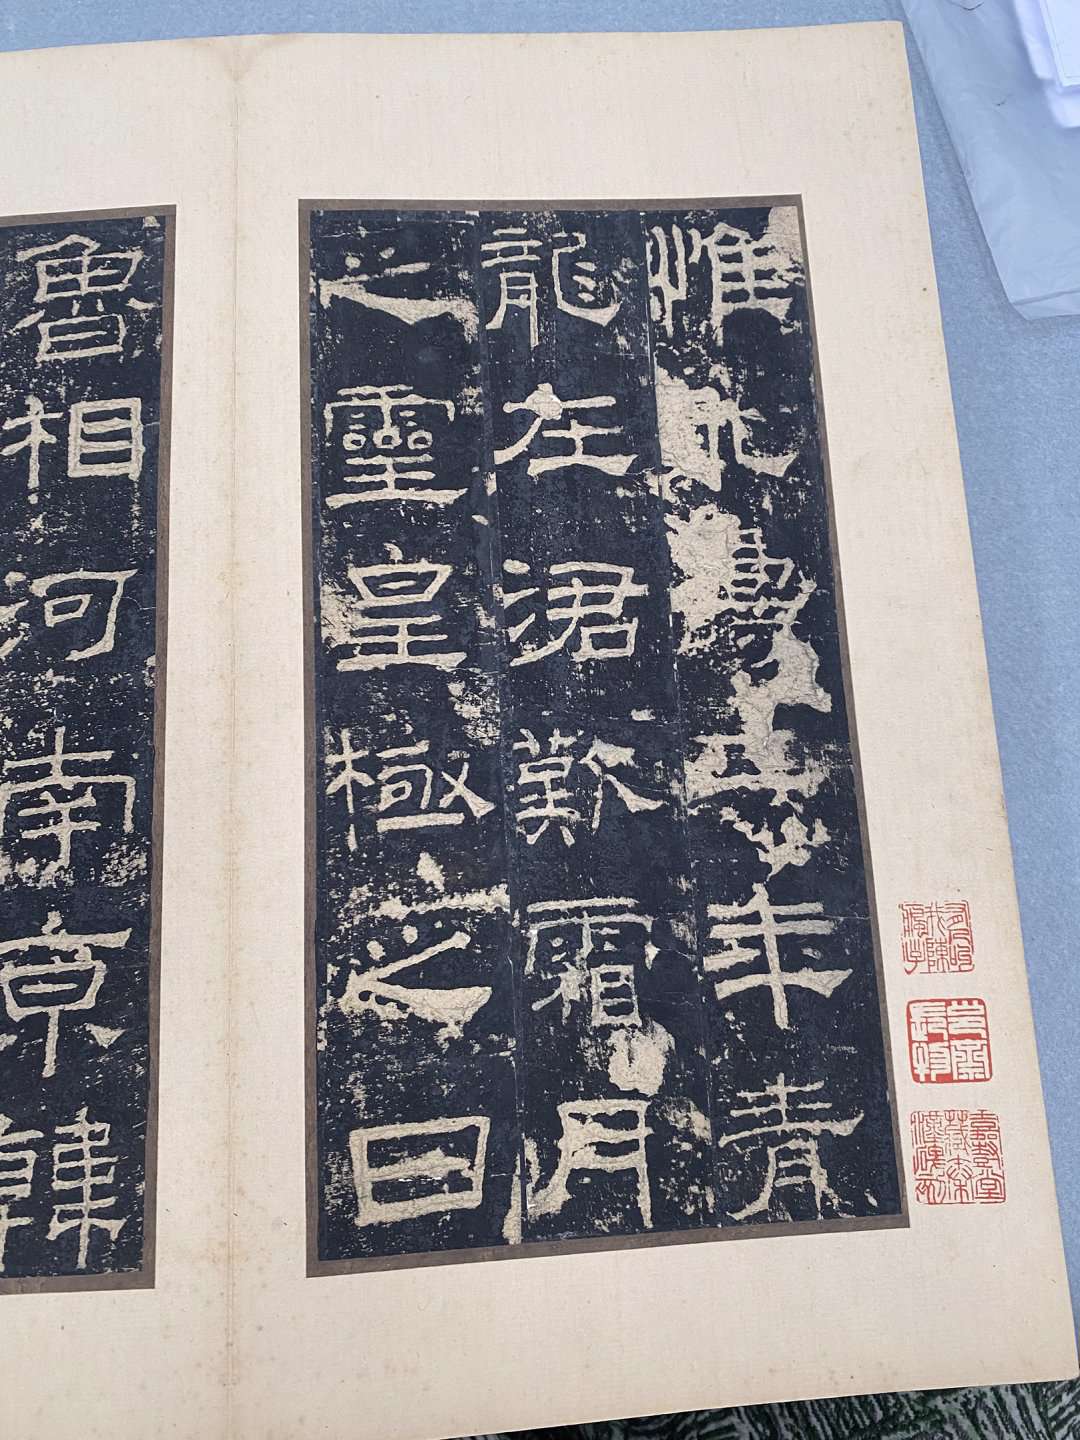 惟永壽二年青
龍在涒歎霜月
之靈皇極之日
魯相河南京韓